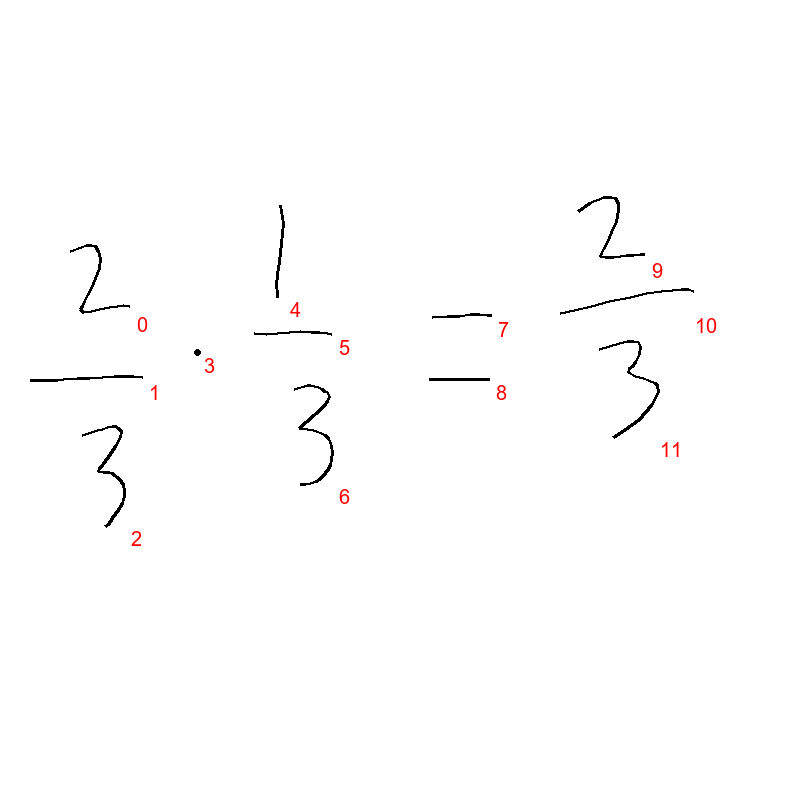 2/3 · 1/3 = 2/3
0 1 2 3 4 5 6 7 8 9 10 11